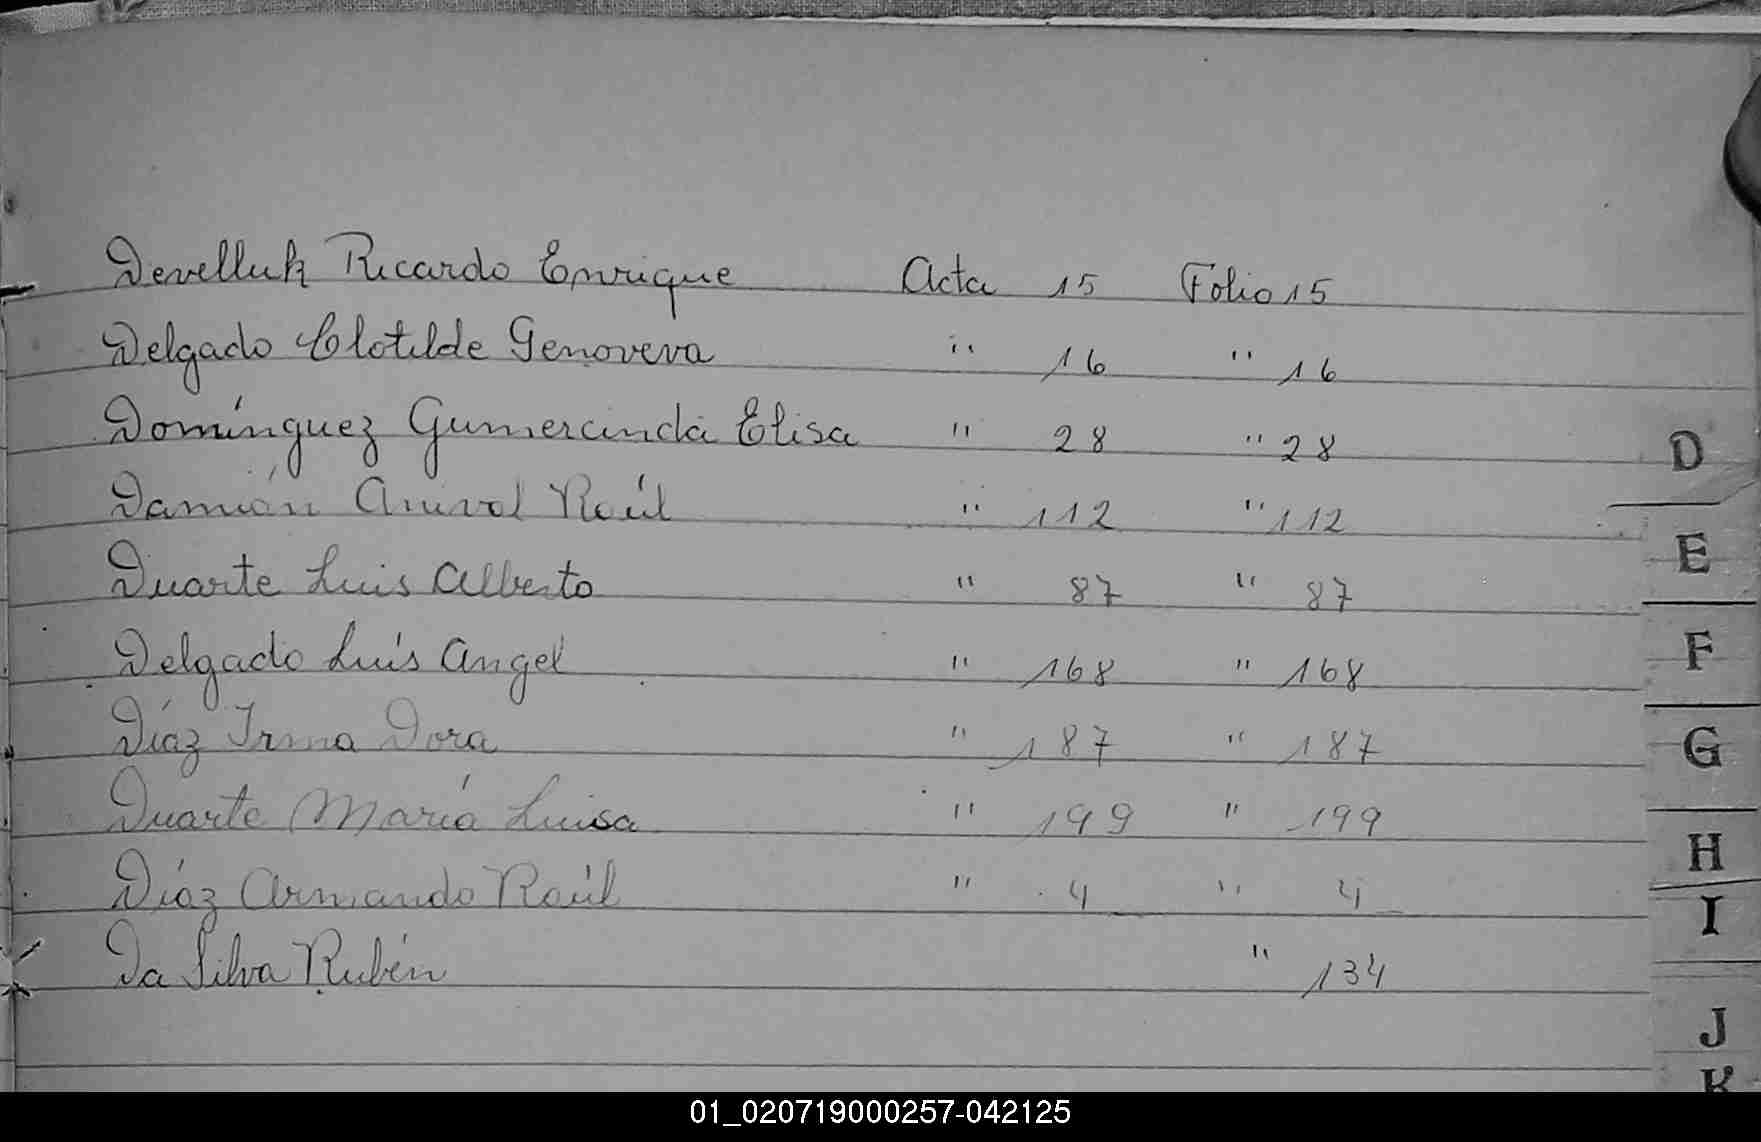 Develluk Ricardo Enrique Acta 15 Folio 15
Delgado Clotilde Genoveva " 16 " 16
Domínguez Gumercinda Elisa " 28 " 28
Damián Anival Raúl " 112 " 112
Duarte Luis Alberto " 87 " 87
Delgado Luis Angel " 168 " 168
Díaz Irma Dora " 187 " 187
Duarte María Luisa " 199 " 199
Díaz Armando Raúl " 4 " 4
Da Silva Rubén " 134
D
E
F
G
H
I
J
K
01_020719000257-042125